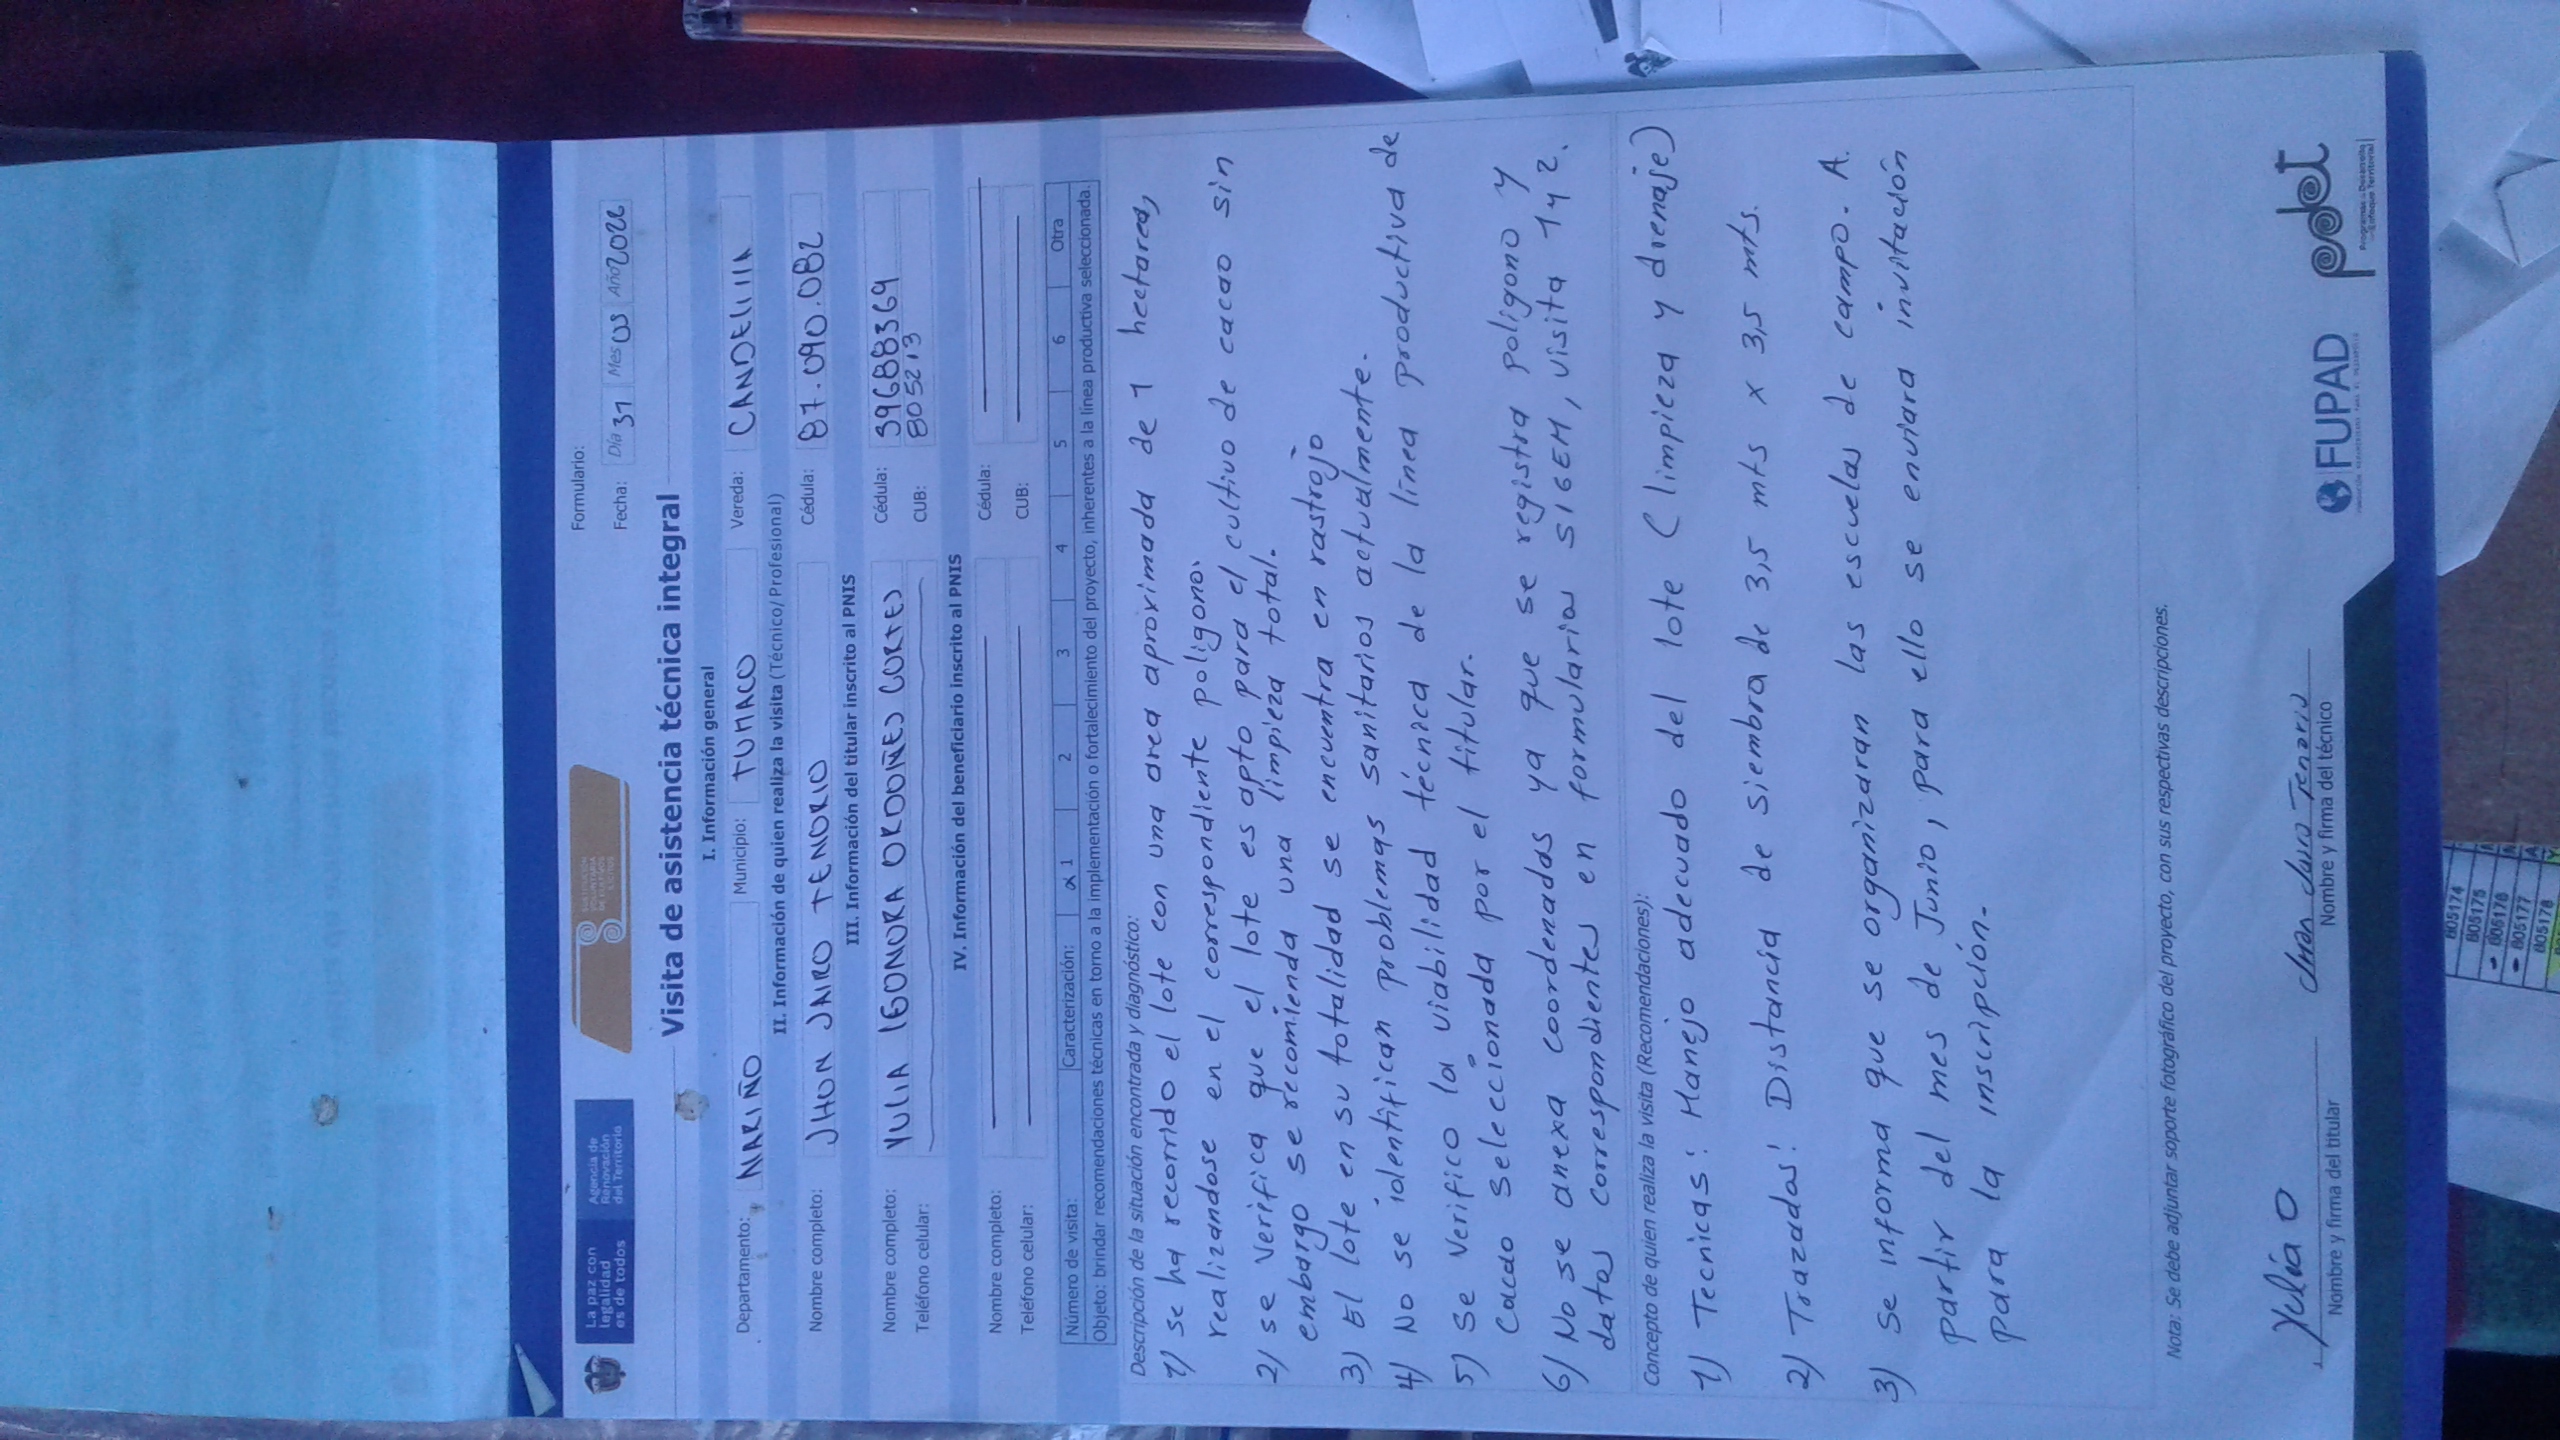 La paz con
legalidad
es de todos
Agencia de
Renovación
del Territorio
SUSTITUCIÓN
VOLUNTARIA
DE CULTIVOS
ILÍCITOS
Formulario:
Fecha: Día 31 Mes 05 Año 2022
Visita de asistencia técnica integral
I. Información general
Departamento: NARIÑO Municipio: TUMACO Vereda: CANDELILLA
II. Información de quien realiza la visita (Técnico/Profesional)
Nombre completo: JHON JAIRO TENORIO Cédula: 87.090.082
III. Información del titular inscrito al PNIS
Nombre completo: YULIA LEONORA ORDOÑES CORTES Cédula: 39688369
Teléfono celular: CUB: 805213
IV. Información del beneficiario inscrito al PNIS
Nombre completo: Cédula:
Teléfono celular: CUB:
Número de visita: Caracterización: x 1 2 3 4 5 6 Otra
Objeto: brindar recomendaciones técnicas en torno a la implementación o fortalecimiento del proyecto, inherentes a la línea productiva seleccionada.
Descripción de la situación encontrada y diagnóstico:
1) se ha recorrido el lote con una area aproximada de 1 hectarea,
realizandose en el correspondiente poligono.
2) se verifica que el lote es apto para el cultivo de cacao sin
embargo se recomienda una limpieza total.
3) El lote en su totalidad se encuentra en rastrojo
4) No se identifican problemas sanitarios actualmente.
5) se verifico la viabilidad técnica de la línea productiva de
cacao seleccionada por el titular.
6) No se anexa coordenadas ya que se registra poligono y
datos correspondientes en formularios SIGEM, visita 1 y 2.
Concepto de quien realiza la visita (Recomendaciones):
1) Tecnicas: Manejo adecuado del lote (limpieza y drenaje)
2) Trazadas: Distancia de siembra de 3,5 mts x 3,5 mts.
3) se informa que se organizaran las escuelas de campo. A
partir del mes de Junio, para ello se enviara invitación
para la inscripción.
Nota: Se debe adjuntar soporte fotográfico del proyecto, con sus respectivas descripciones.
Yulia O
Nombre y firma del titular
Jhon Jairo Tenorio
Nombre y firma del técnico
FUPAD
pdet
Programas de Desarrollo
con Enfoque Territorial
805174
805175
805176
805177
805178